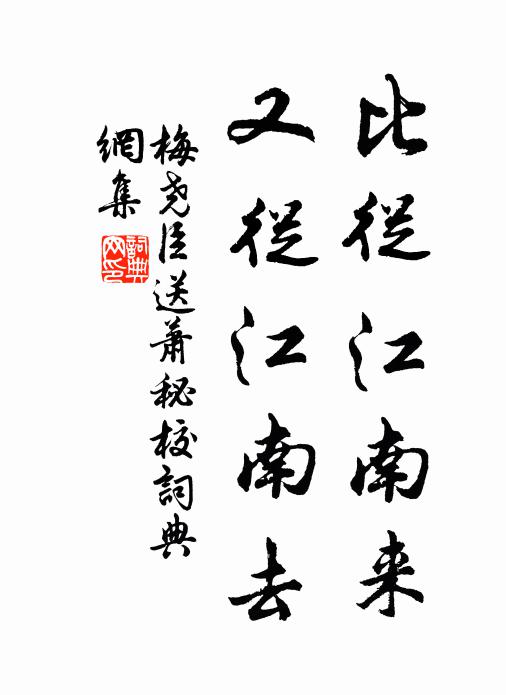 比從江南来
又從江南去
梅尧臣送蕭秘校詞典
網集
詞典
网印